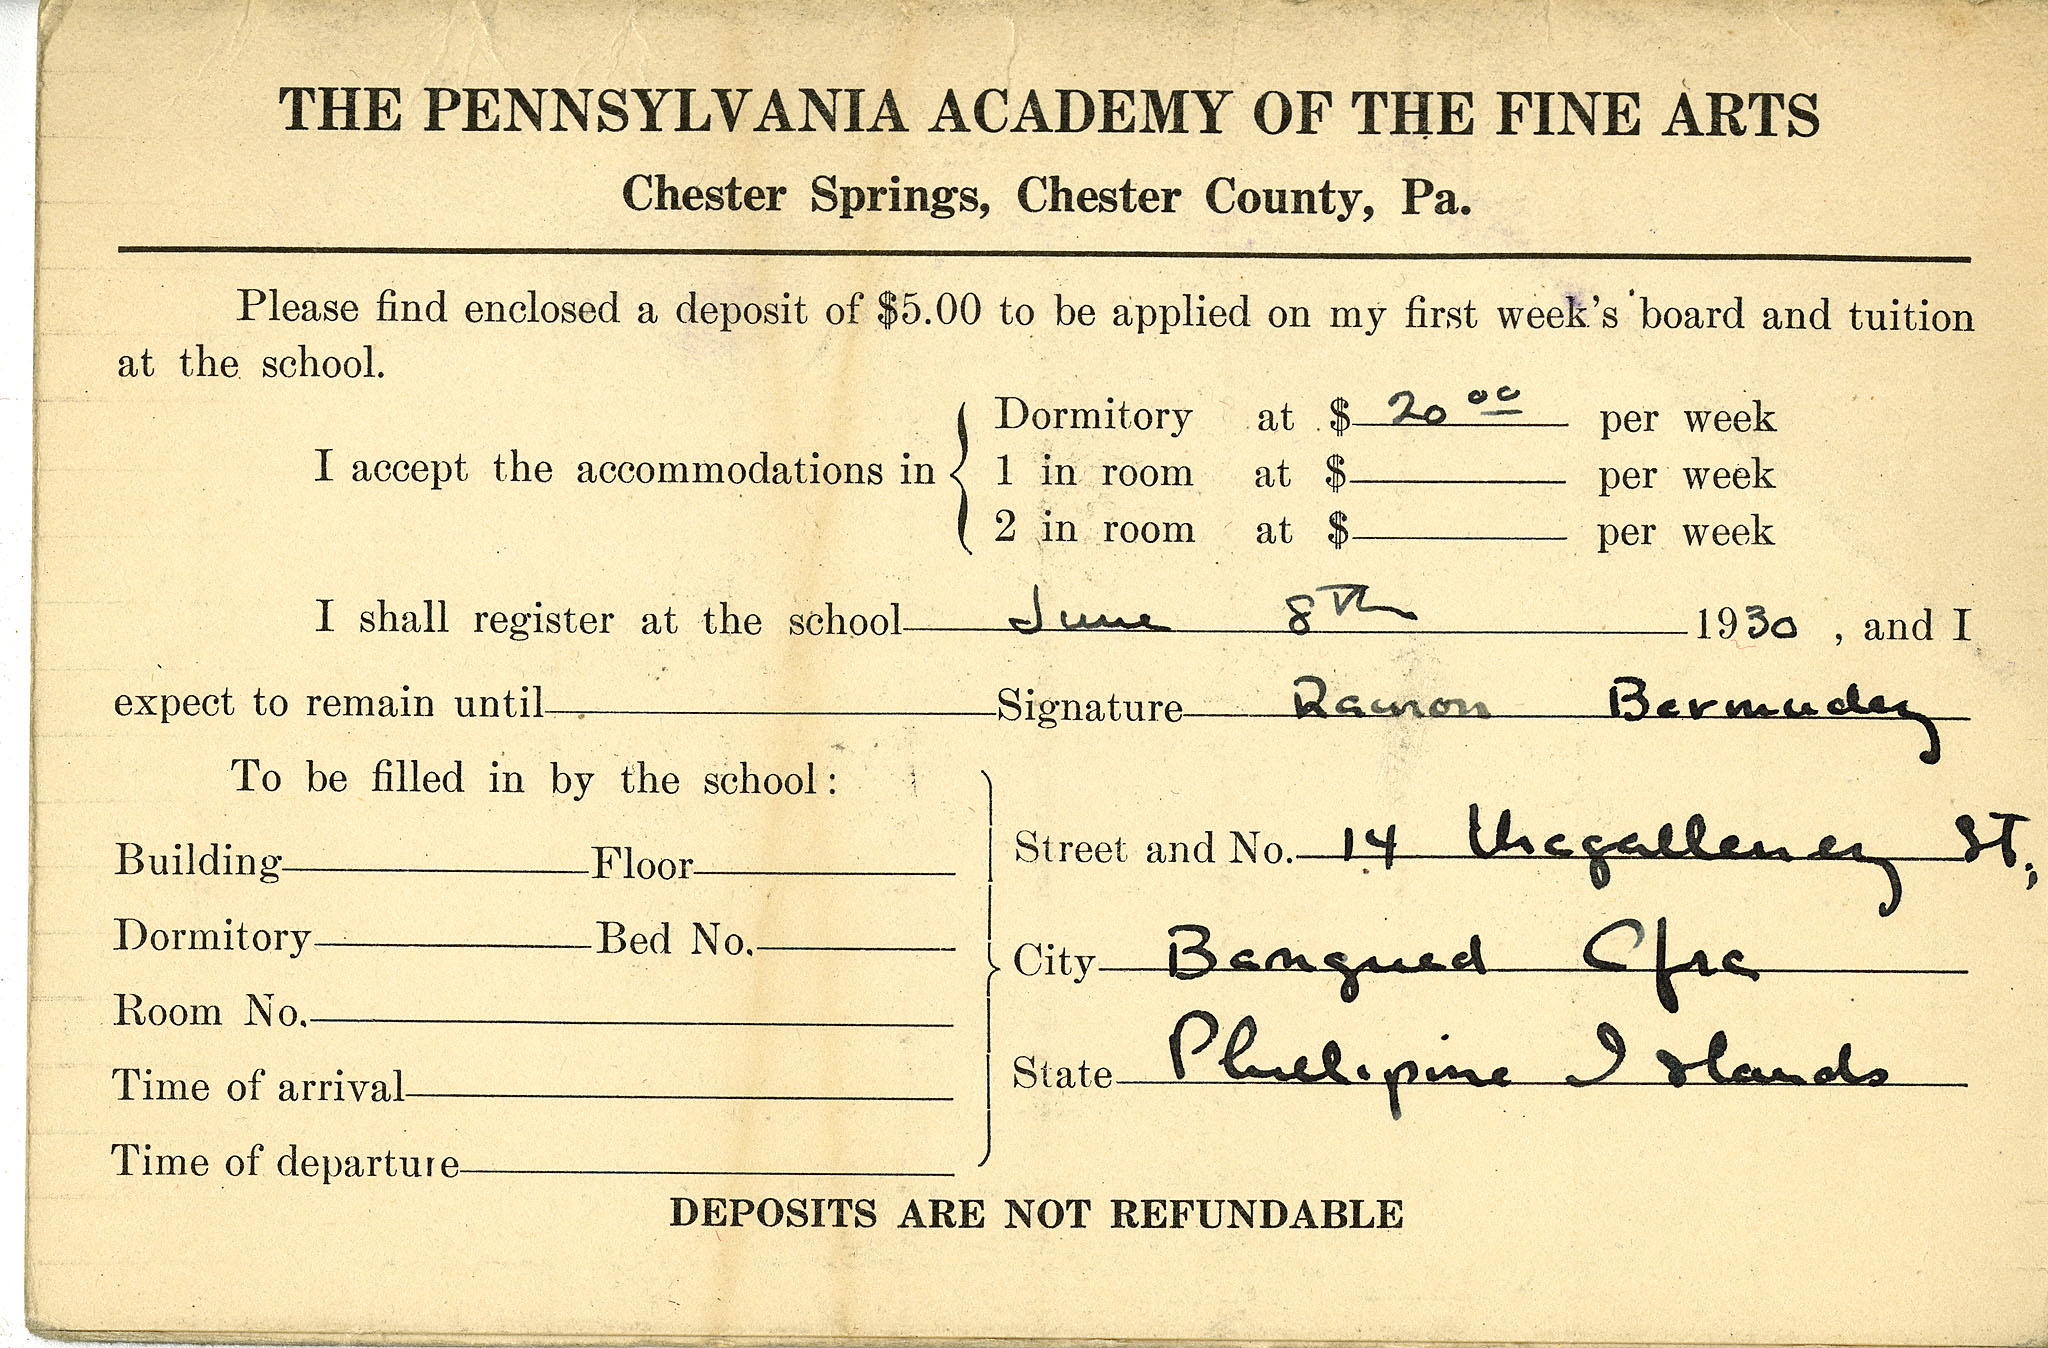 THE PENNSYLVANIA ACADEMY OF THE FINE ARTS
Chester Springs, Chester County, Pa.
Please find enclosed a deposit of $5.00 to be applied on my first week's board and tuition
at the school.
I accept the accommodations in
Dormitory at $ 20 00 per week
1 in room at $ per week
2 in room at $ per week
I shall register at the school June 8th 1930, and I
expect to remain until Signature Ramon Bermudez
To be filled in by the school:
Building Floor
Dormitory Bed No.
Room No.
Time of arrival
Time of departure
Street and No. 14 Magallenez St.,
City Bangued
State Phillipine Islands
DEPOSITS ARE NOT REFUNDABLE